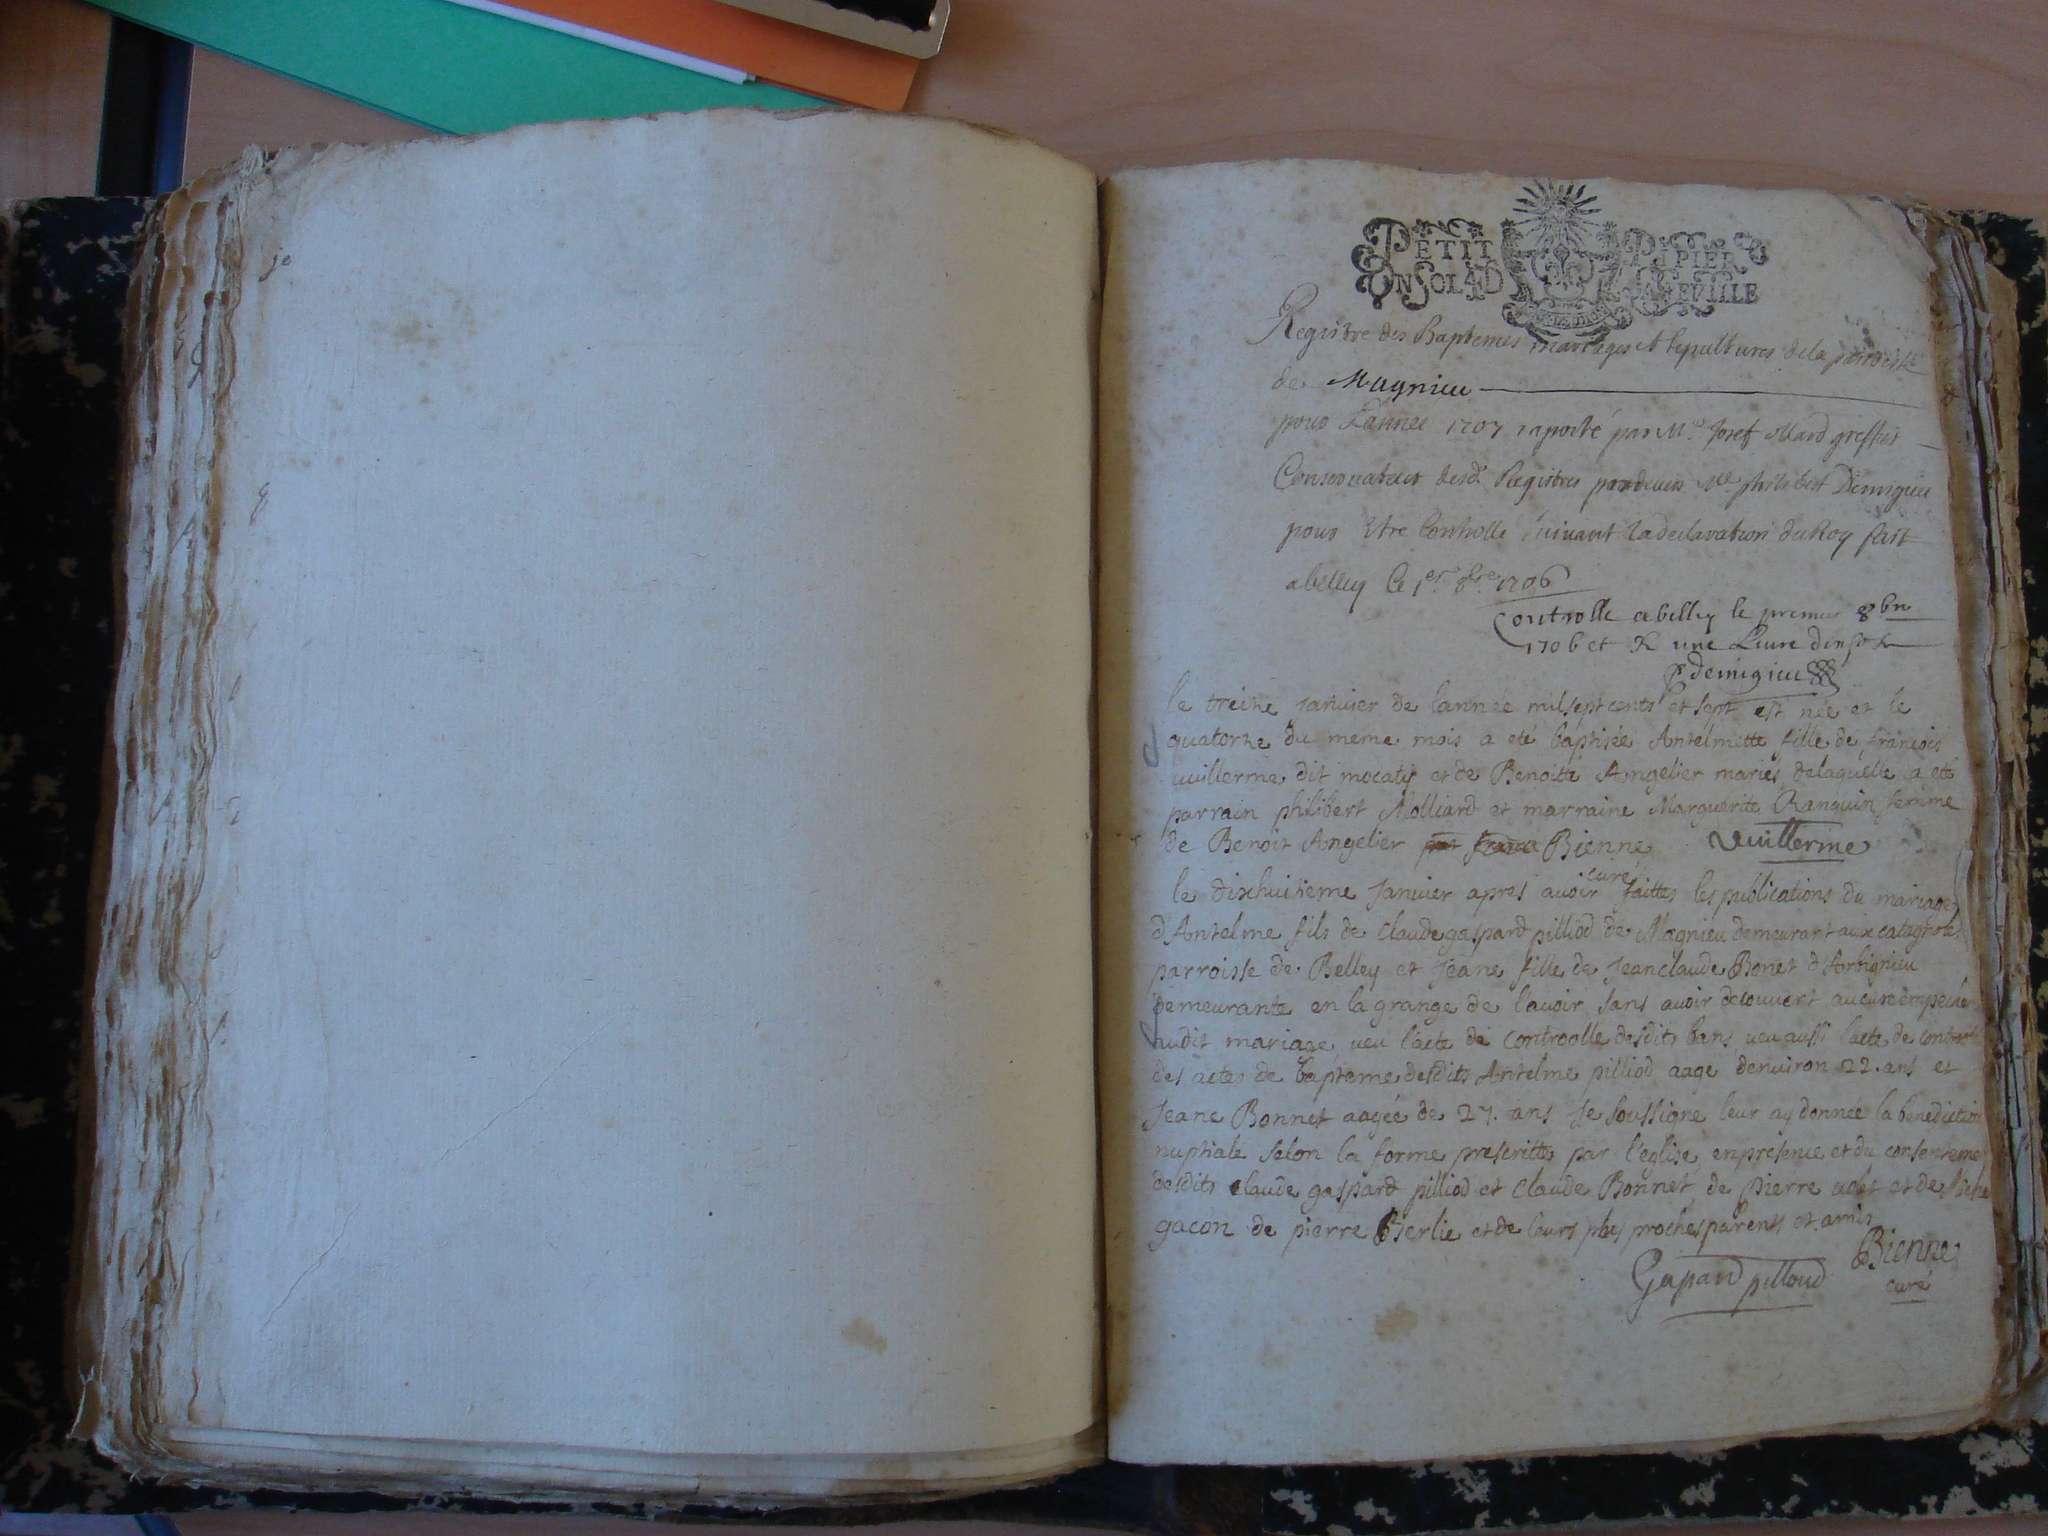 PETIT PAPIER
UN SOL LA FEUILLE
Registre des Baptemes mariages et sepultures de la parroisse
de Magnieu
pour L'année 1707 raporté par Me Josef Mard greffier
Conservateur desd. Registres pardevers Me philibert Demigieu
pour etre Controlle suivant la declaration du Roy fait
a belley le 1er 8bre 1706
Controlle a belley le premier 8bre
1706 et R une Livre dix sols
P demigieu
le treize janvier de lannée mil sept cents et sept est née et le
quatorze du meme mois a eté baptisée Antelmette fille de françois
vuillerme dit mocatis et de Benoitte Angelier mariés de laquelle a eté
parrain philibert Molliard et marraine Marguerite Ranquin femme
de Benoit Angelier Bienne Vuillerme
curé
le dixhuitieme janvier apres avoir faittes les publications du mariage
d'Antelme fils de claude gaspard pilliod de Magnieu demeurant aux catagnole
parroisse de Belley et jeane fille de jeanclaude Bonet d'Arbignieu
demeurante en la grange de lavoir sans avoir decouvert aucun empeche
audit mariage veu l'acte de controolle desdits bans veu aussi l'acte de controole
des actes de bapteme desdits Antelme pilliod aage denviron 22. ans et
Jeane Bonnet aagée de 27. ans je soussigne leur ay donnée la benediction
nuptiale selon la forme prescritte par l'eglise en presence et du consenteme
desdits claude gaspard pilliod et claude Bonnet de pierre et de
gacon de pierre Berlie et de leurs plus proches parents et amis
Gapard pilloud Bienne
curé